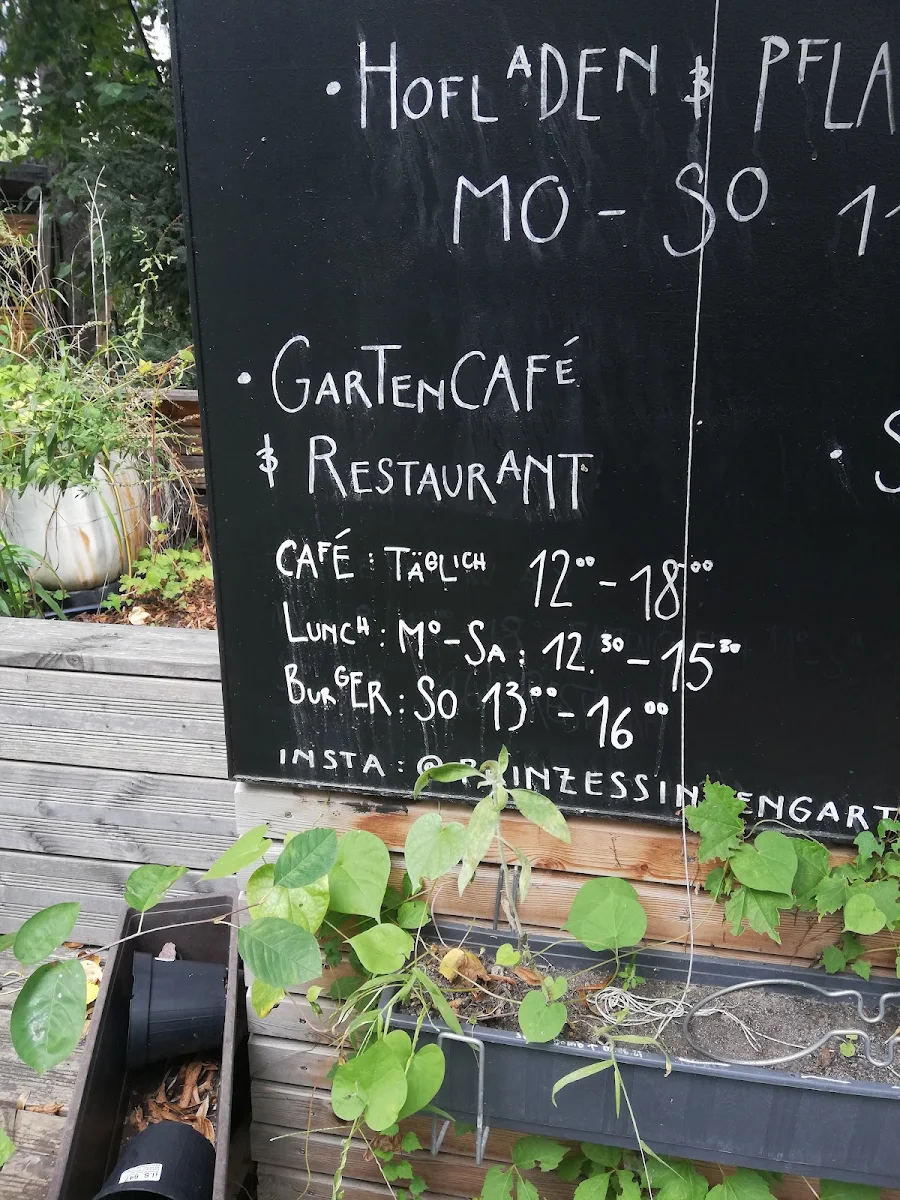 • HOFLADEN & PFLA
MO - SO 11
• GARTENCAFÉ
& RESTAURANT
CAFÉ : TÄGLICH 12⁰⁰ - 18⁰⁰
LUNCH : MO - SA : 12.³⁰ - 15³⁰
BURGER : SO 13⁰⁰ - 16⁰⁰
INSTA : @PRINZESSINNENGART
• S